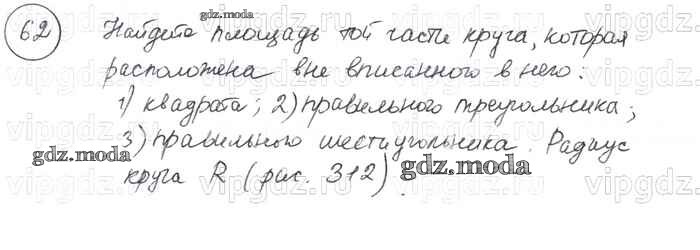 62 Найдите площадь той части круга, которая
расположена вне вписанного в него:
1) квадрата; 2) правильного треугольника;
3) правильного шестиугольника. Радиус
круга R (рис. 312).
gdz.moda
gdz.moda
gdz.moda
gdz.moda
vipgdz.com